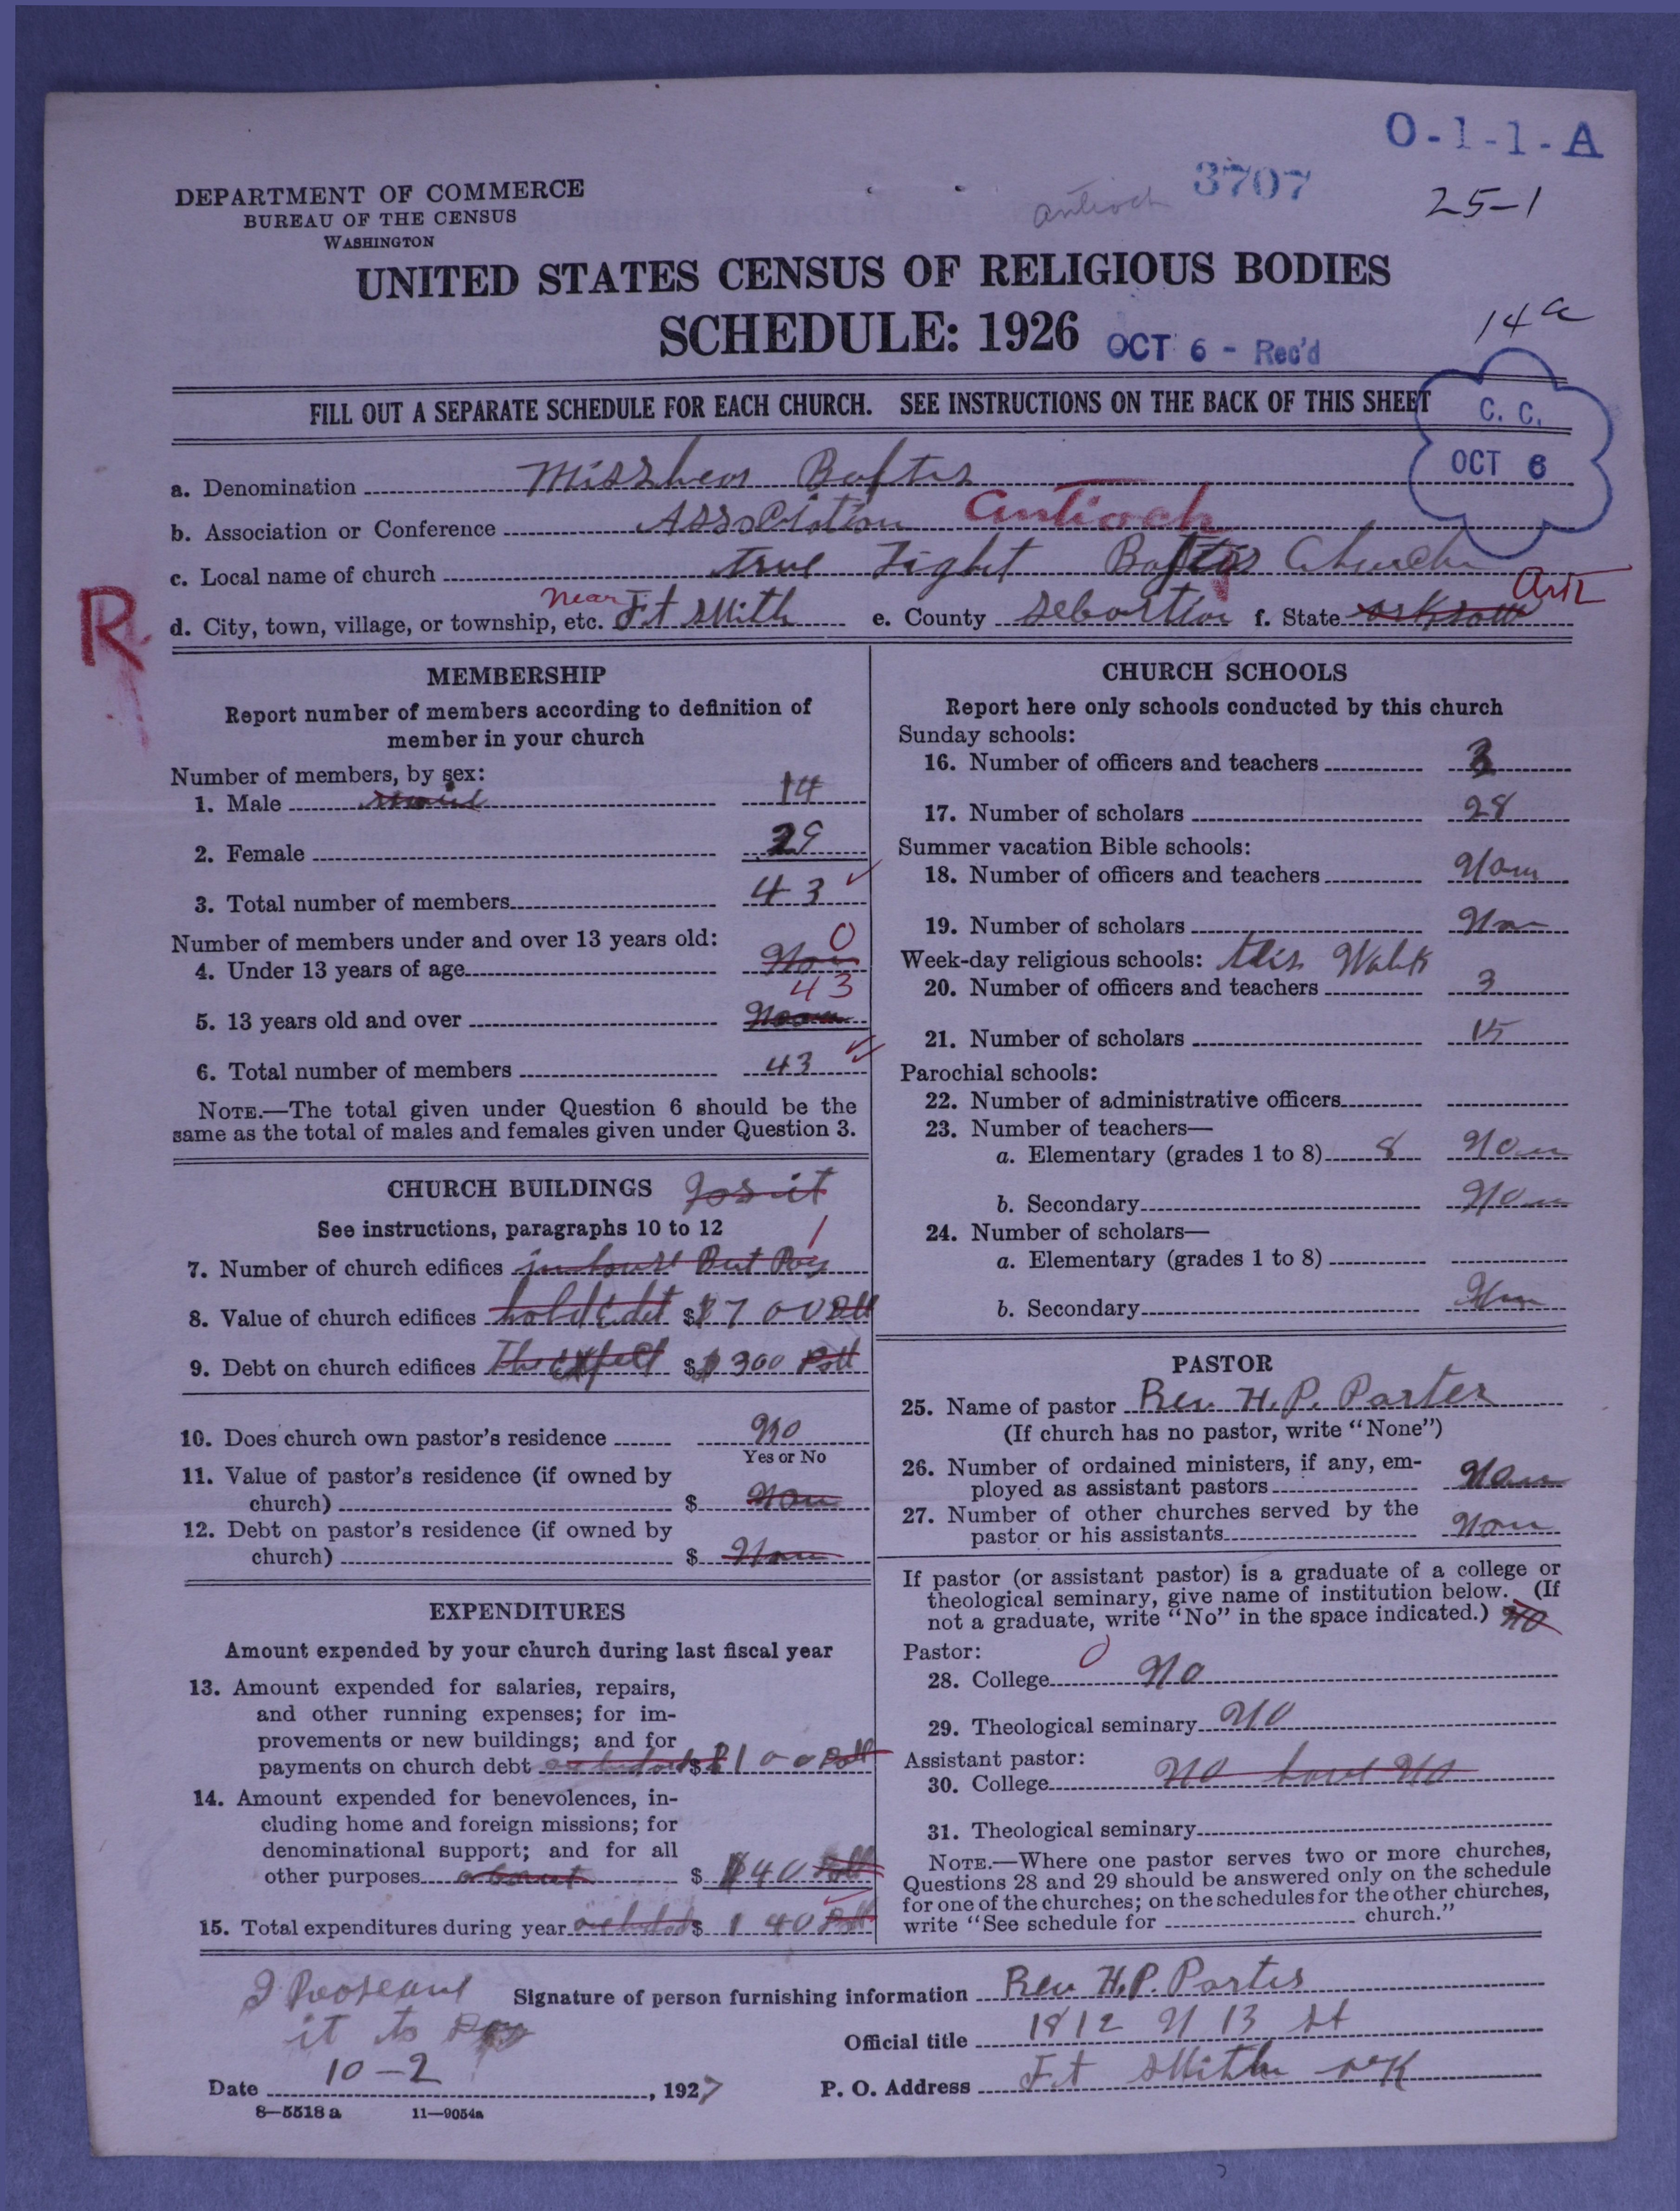 O-1-1-A
3707
Antioch
25-1
DEPARTMENT OF COMMERCE
BUREAU OF THE CENSUS
WASHINGTON
UNITED STATES CENSUS OF RELIGIOUS BODIES
SCHEDULE: 1926
OCT 6 - Rec'd
14a
FILL OUT A SEPARATE SCHEDULE FOR EACH CHURCH. SEE INSTRUCTIONS ON THE BACK OF THIS SHEET
C. C.
OCT 6
a. Denomination Baftis
b. Association or Conference Association Antioch
c. Local name of church true Light Baftis Church
R
d. City, town, village, or township, etc. near Ft Smith e. County Sebastion f. State Ark
MEMBERSHIP
Report number of members according to definition of
member in your church
Number of members, by sex:
1. Male 14
2. Female 29
3. Total number of members 43
Number of members under and over 13 years old:
4. Under 13 years of age 0
5. 13 years old and over 43
6. Total number of members 43
NOTE.—The total given under Question 6 should be the
same as the total of males and females given under Question 3.
CHURCH BUILDINGS
See instructions, paragraphs 10 to 12
7. Number of church edifices 1
8. Value of church edifices $700
9. Debt on church edifices $300
10. Does church own pastor's residence No
Yes or No
11. Value of pastor's residence (if owned by
church) $
12. Debt on pastor's residence (if owned by
church) $
EXPENDITURES
Amount expended by your church during last fiscal year
13. Amount expended for salaries, repairs,
and other running expenses; for im-
provements or new buildings; and for
payments on church debt $100
14. Amount expended for benevolences, in-
cluding home and foreign missions; for
denominational support; and for all
other purposes about $ 40
15. Total expenditures during year $ 140
CHURCH SCHOOLS
Report here only schools conducted by this church
Sunday schools:
16. Number of officers and teachers 3
17. Number of scholars 28
Summer vacation Bible schools:
18. Number of officers and teachers Non
19. Number of scholars Non
Week-day religious schools:
20. Number of officers and teachers 3
21. Number of scholars 15
Parochial schools:
22. Number of administrative officers
23. Number of teachers—
a. Elementary (grades 1 to 8) 8 Non
b. Secondary Non
24. Number of scholars—
a. Elementary (grades 1 to 8)
b. Secondary Non
PASTOR
25. Name of pastor Rev. H. P. Porter
(If church has no pastor, write "None")
26. Number of ordained ministers, if any, em-
ployed as assistant pastors Non
27. Number of other churches served by the
pastor or his assistants Non
If pastor (or assistant pastor) is a graduate of a college or
theological seminary, give name of institution below. (If
not a graduate, write "No" in the space indicated.) No
Pastor: 0
28. College No
29. Theological seminary No
Assistant pastor:
30. College No have No
31. Theological seminary
NOTE.—Where one pastor serves two or more churches,
Questions 28 and 29 should be answered only on the schedule
for one of the churches; on the schedules for the other churches,
write "See schedule for church."
it to
Signature of person furnishing information Rev H. P. Porter
Official title 1812 N 13 St
Date 10-2, 1927 P. O. Address Ft Smith ark
8—5518 a 11—9054a